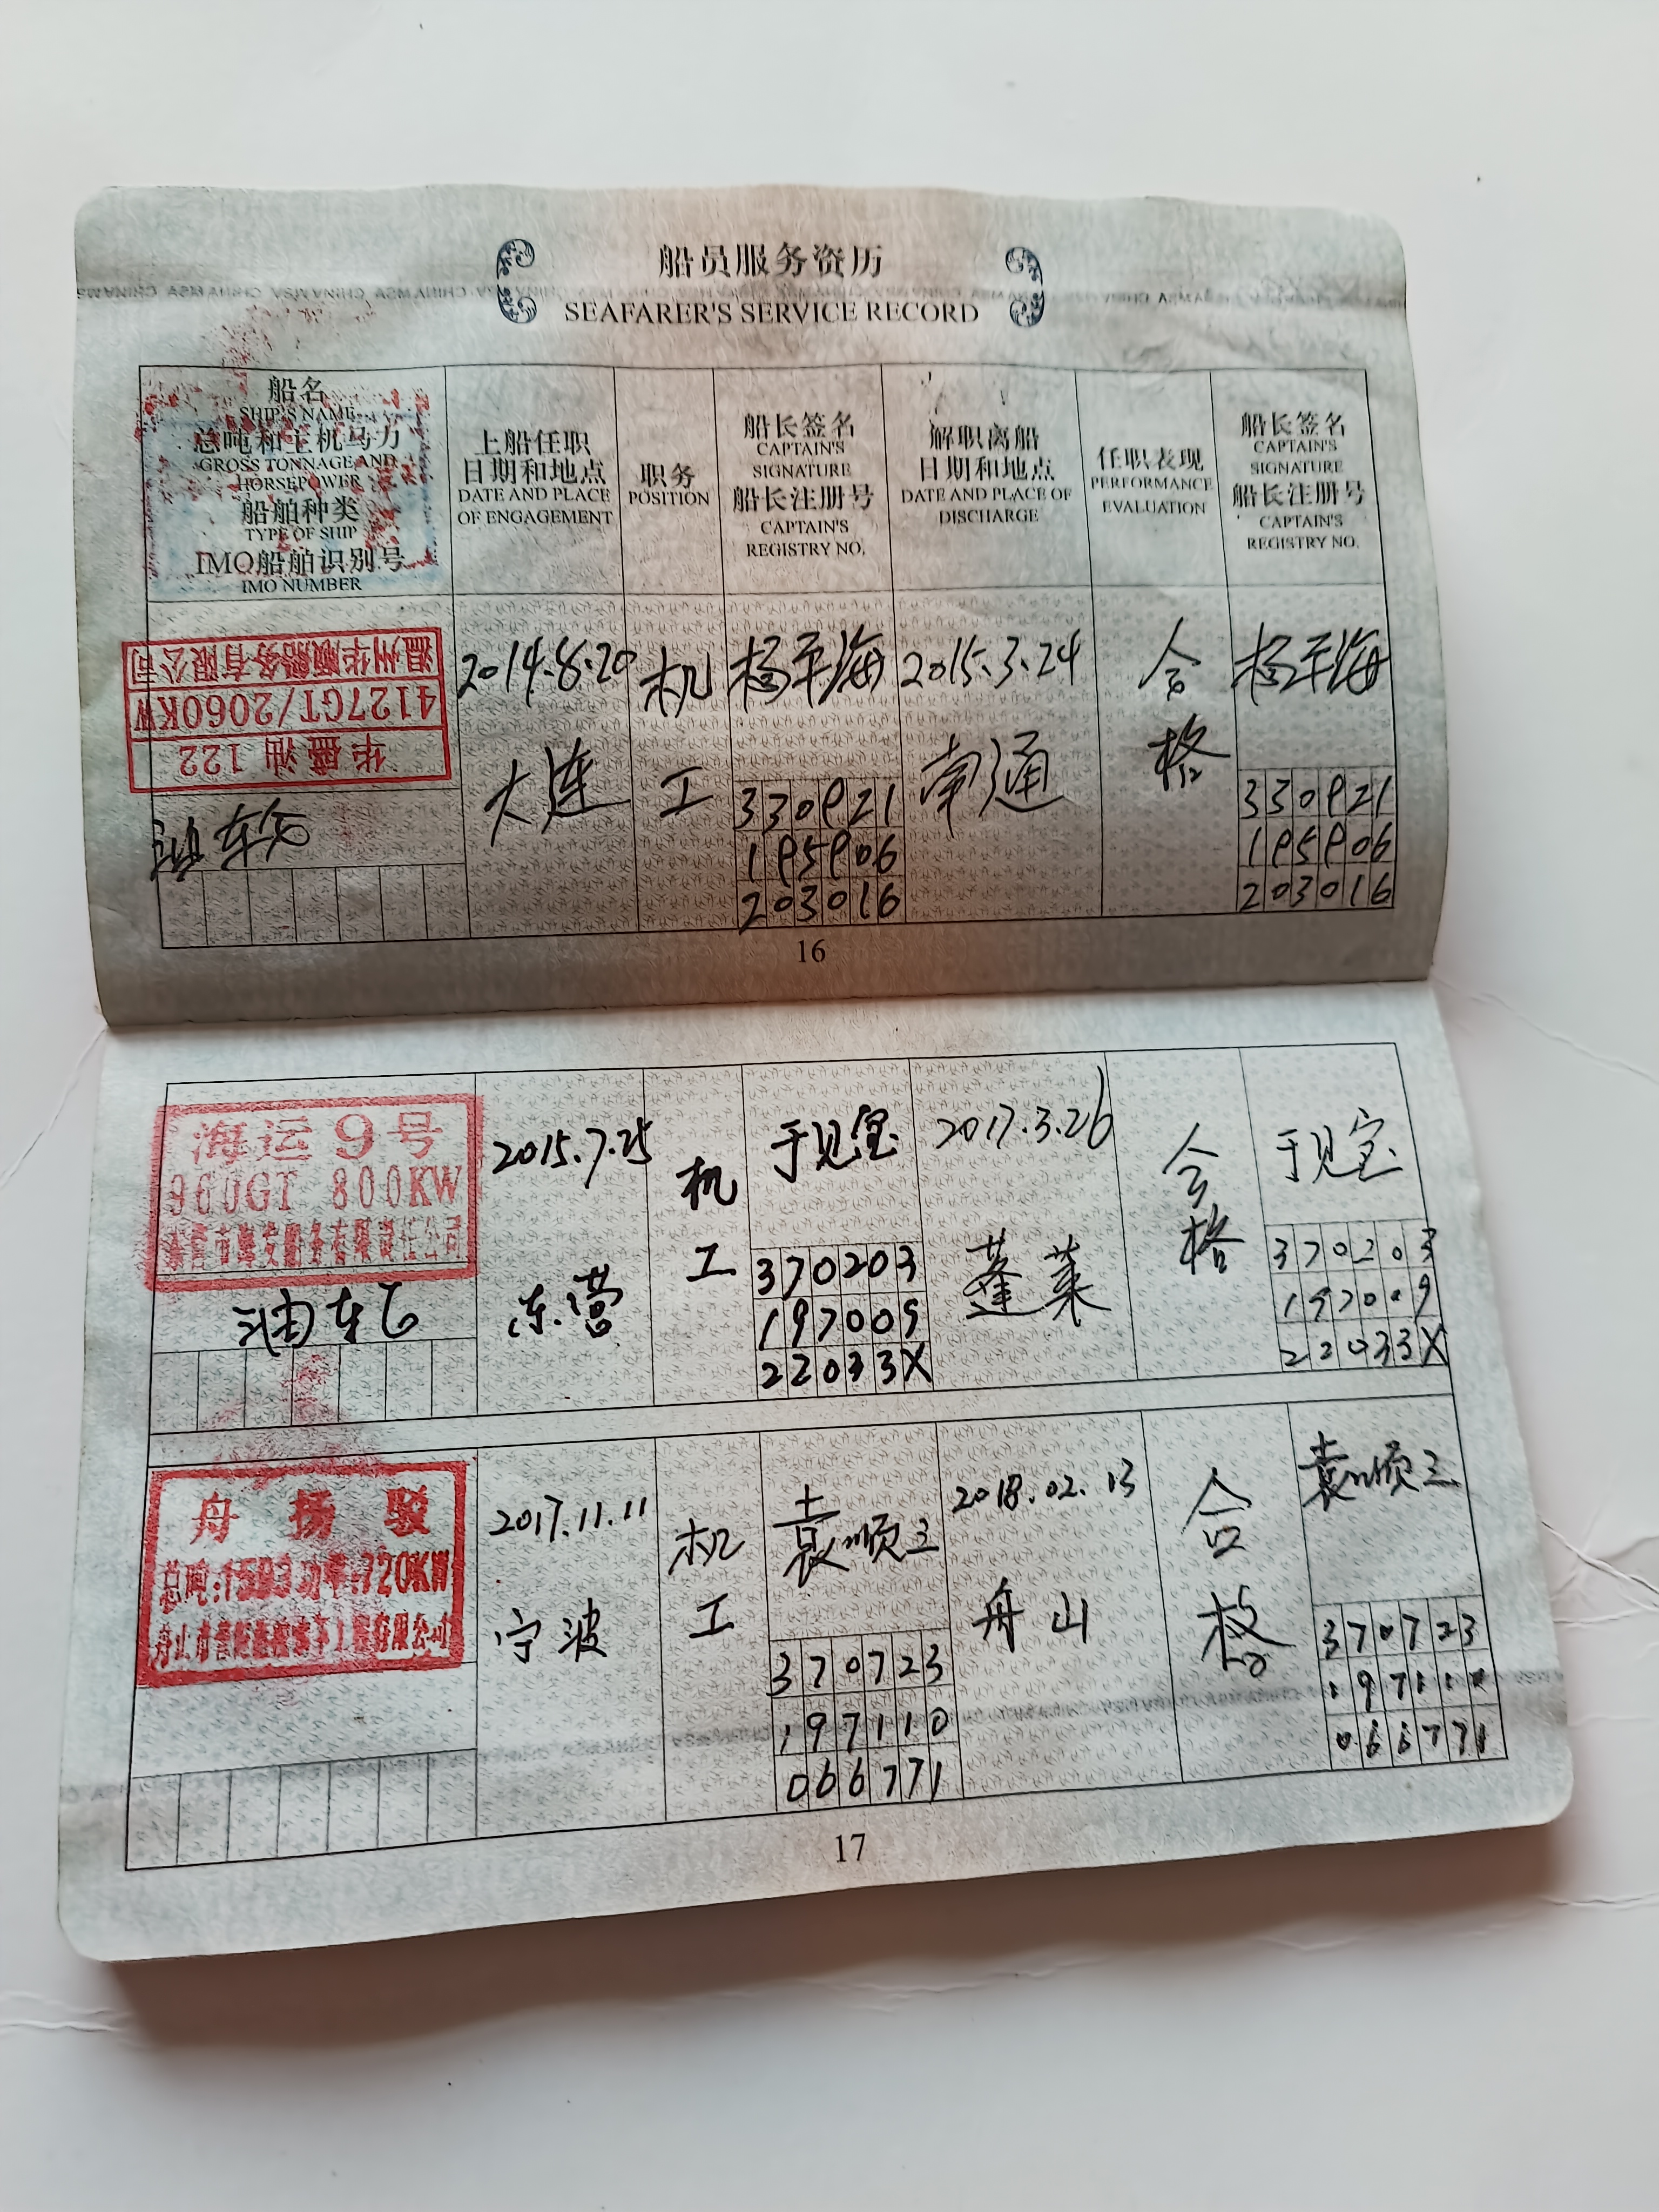 船员服务资历
SEAFARER'S SERVICE RECORD
船名
SHIP'S NAME
总吨和主机马力
GROSS TONNAGE AND
HORSEPOWER
船舶种类
TYPE OF SHIP
IMO船舶识别号
IMO NUMBER
上船任职
日期和地点
DATE AND PLACE
OF ENGAGEMENT
职务
POSITION
船长签名
CAPTAIN'S
SIGNATURE
船长注册号
CAPTAIN'S
REGISTRY NO.
解职离船
日期和地点
DATE AND PLACE OF
DISCHARGE
任职表现
PERFORMANCE
EVALUATION
船长签名
CAPTAIN'S
SIGNATURE
船长注册号
CAPTAIN'S
REGISTRY NO.
华盛油 122
4127GT/2060KW
温州华顺船务有限公司
油轮
2014.8.20
大连
机
工
杨平海
330921
195906
203016
2015.3.24
南通
合
格
杨平海
330921
195906
203016
16
海运9号
960GT 800KW
油轮
2015.7.25
东营
机
工
于见宝
370203
197009
22033X
2017.3.26
蓬莱
合
格
于见宝
370203
197009
22033X
舟 扬 驳
总吨:1593 功率:720KW
2017.11.11
宁波
机
工
袁顺三
370723
197110
066771
2018.02.13
舟山
合
格
袁顺三
370723
197110
066771
17